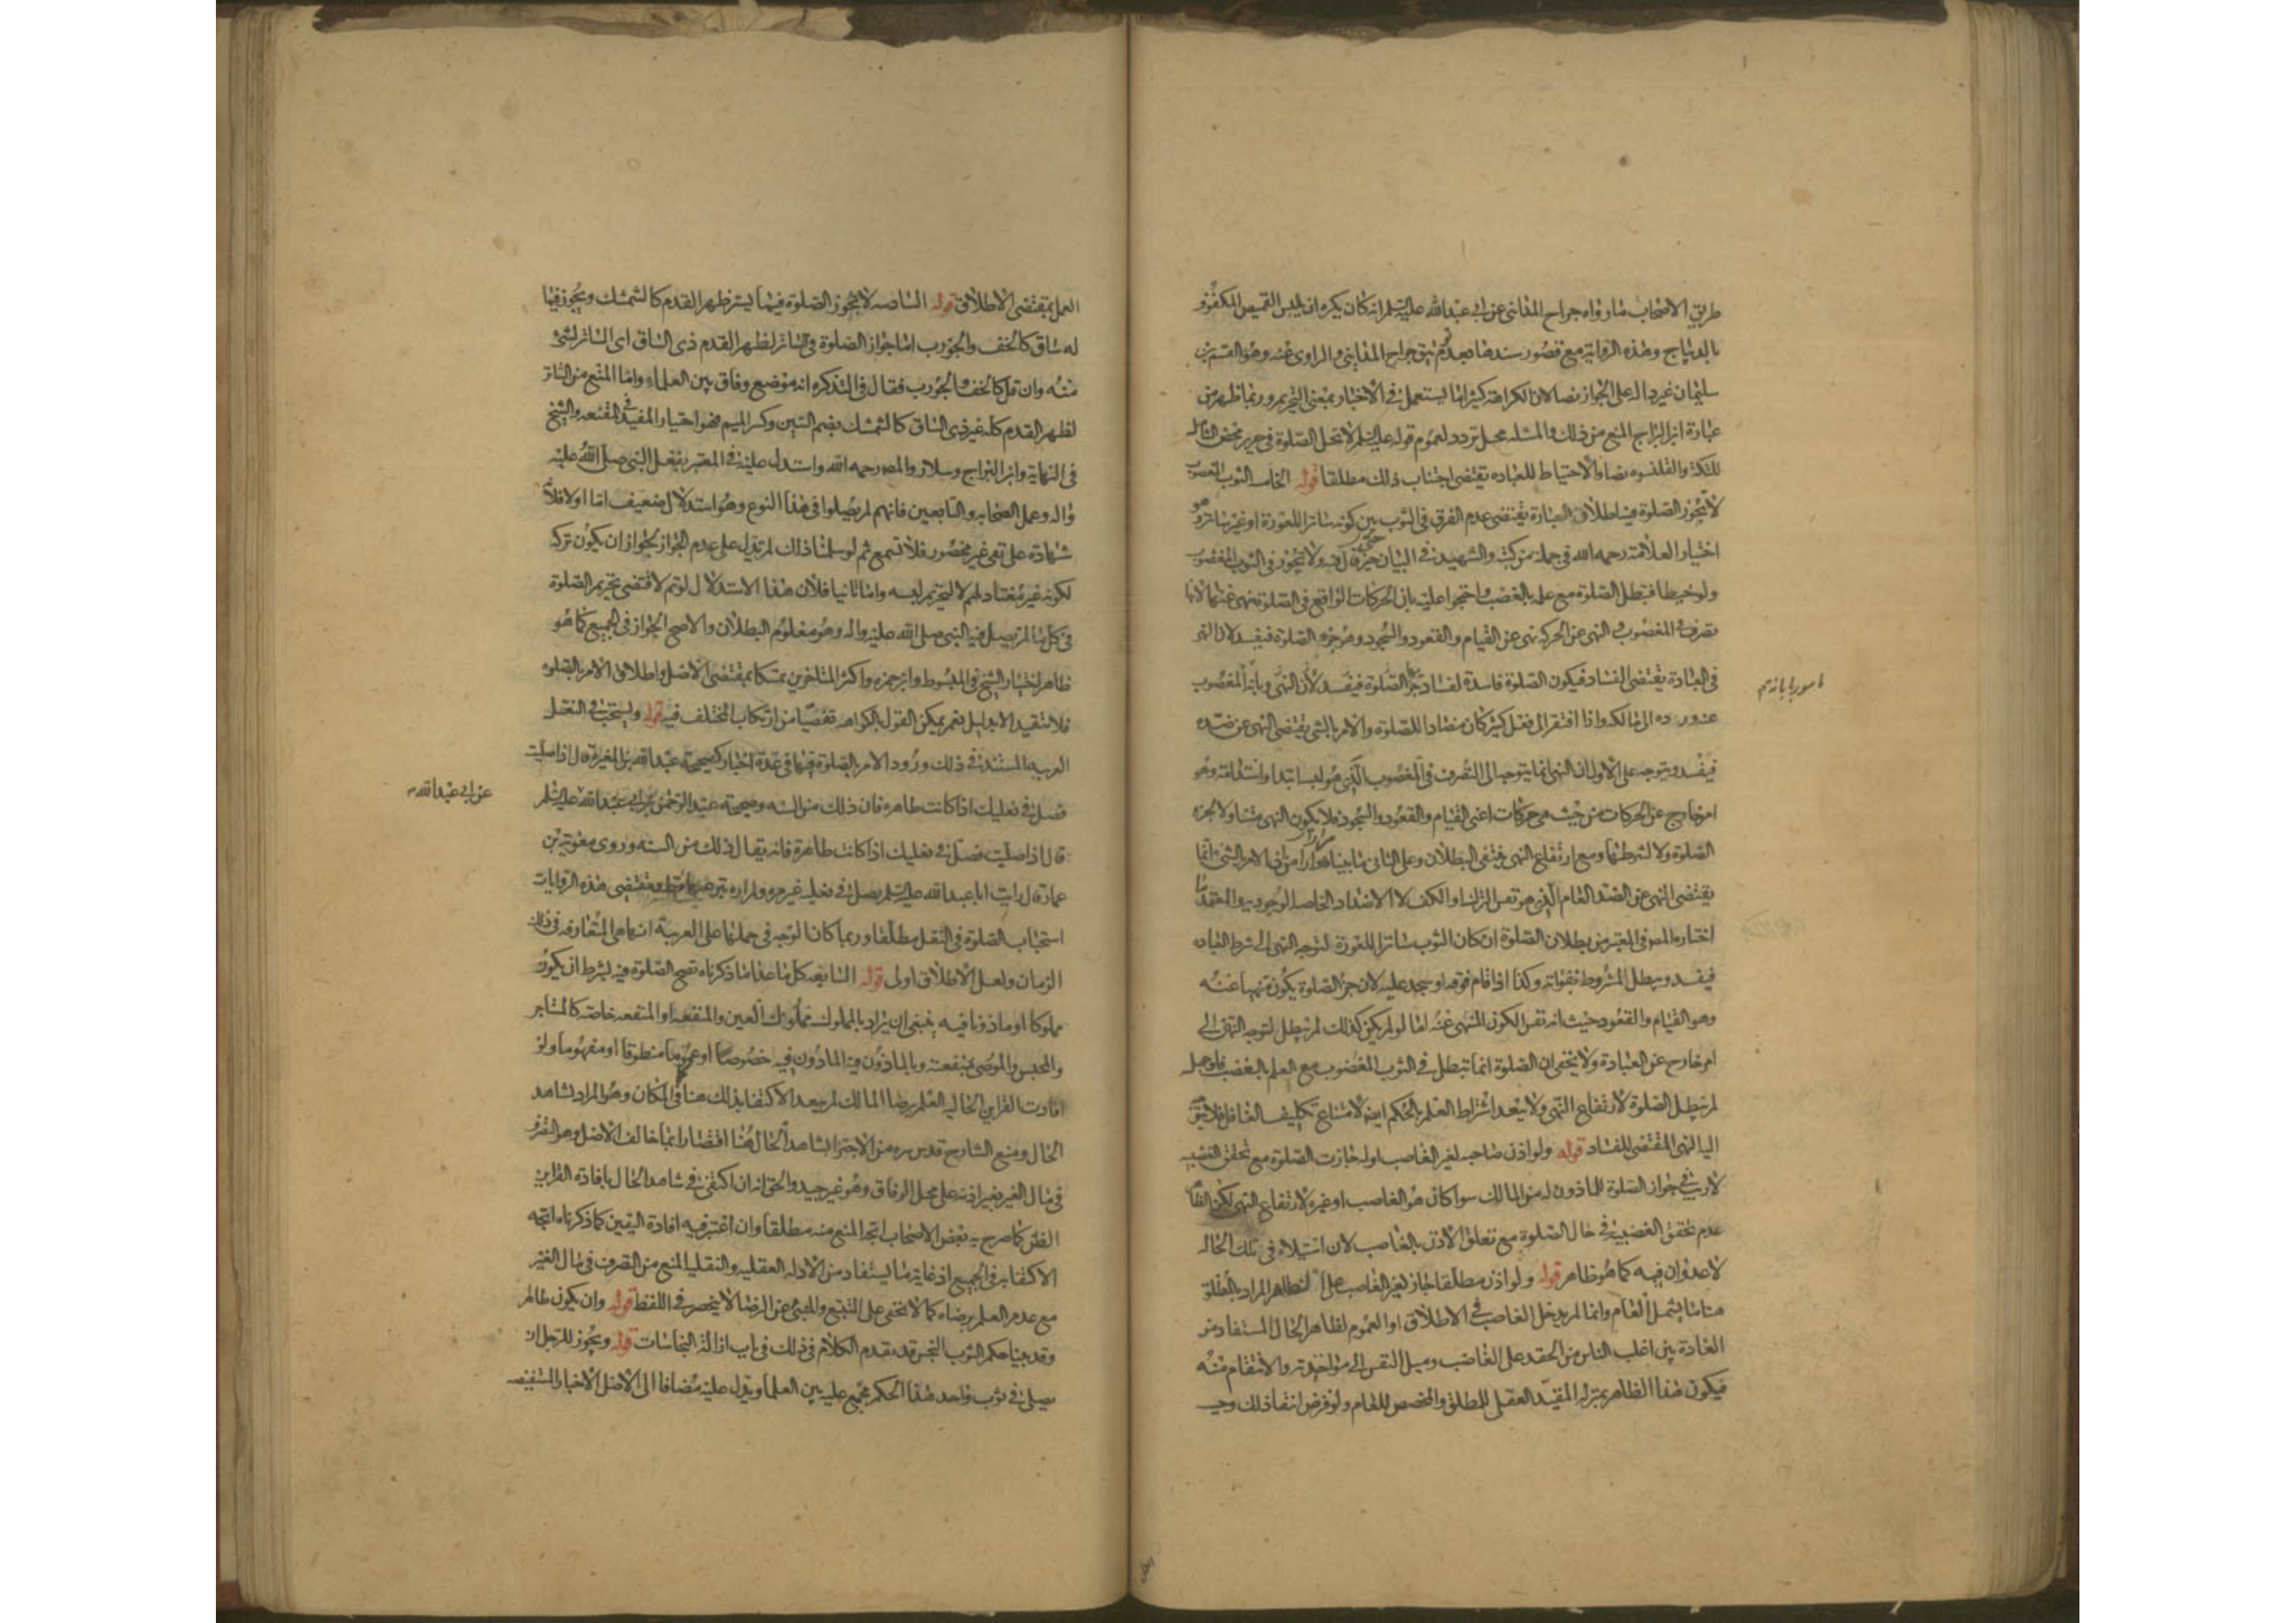 طريق الاصحاب ما رواه جراح المدايني عن ابي عبدالله عليه السلم انه كان يكره ان يلبس القميص المكفوف
بالديباج وهذه الرواية مع قصور سندها بعدم توثيق جراح المدايني والراوي عنه وهو القسم بن
سليمان غير دالة على الجواز نصا لان الكراهة كثيرا ما يستعمل في الاخبار بمعنى التحريم وربما ظهر من
عبارة ابن البراج المنع من ذلك والمسئله محل تردد لعموم قوله عليه السلم لا تحل الصلوة في حرير محض الشامله
للتكة والقلنسوه نصا والاحتياط للعباده يقتضي اجتناب ذلك مطلقا قوله الخامسه الثوب المغصوب
لا تجوز الصلوة فيه اطلاق العبارة يقتضي عدم الفرق في الثوب بين كونه ساترا للعورة او غير ساتر وهو
اختيار العلامة رحمه الله في جملة من كتبه والشهيد في البيان حتى قال فيه ولا يجوز في الثوب المغصوب
ولو خيطا فتبطل الصلوة مع علمه بالغصب واحتجوا عليه بان الحركات الواقعة في الصلوة منهي عنها لانها
تصرف في المغصوب والنهي عن الحركة نهي عن القيام والقعود والسجود وهو جزء الصلوة فيفسد لان النهي
في العبادة يقتضي الفساد فيكون الصلوة فاسدة لفساد جزئها الصلوة فيفسد لان النهي وبانه المغصوب
عنه ورده الى المالك واذا افتقر الى فعل كثير كان مضادا للصلوة والامر بالشي يقتضي النهي عن ضده
فيفسد ويتوجه على الاول ان النهي انما يتوجه الى التصرف في المغصوب الذي هو لبسه ابتدا واستدامة وهو
امر خارج عن الحركات من حيث هي حركات اعني القيام والقعود والسجود فلا يكون النهي متناولا لجزء
الصلوة ولا لشرطها ومع ارتفاع النهي ينتفي البطلان وعلى الثاني ما بيناه مرارا من ان الامر بالشي انما
يقتضي النهي عن الضد العام الذي هو نفس الترك او الكف لا الاضداد الخاصه الوجوديه والمعتمد ما
اختاره المصه في المعتبر من بطلان الصلوة ان كان الثوب ساترا للعورة لتوجه النهي الى شرط العباده
فيفسد ويبطل المشروط بفواته وكذا اذا قام فوقه او سجد عليه لان جزء الصلوة يكون منهيا عنه
وهو القيام والقعود حيث انه نفس الكون المنهي عنه اما لو لم يكن كذلك لم تبطل لتوجه النهي الى
امر خارج عن العبادة ولا يخفى ان الصلوة انما تبطل في الثوب المغصوب مع العلم بالغصب فلو جهله
لم تبطل الصلوة لارتفاع النهي ولا يبعد اشتراط العلم بالحكم ايضا لامتناع تكليف الغافل فلا يتوجه
اليه النهي المقتضي للفساد قوله ولو اذن صاحبه لغير الغاصب او له جازت الصلوة مع تحقق الغصبيه
لا ريب في جواز الصلوة للماذون له من المالك سوا كان هو الغاصب او غيره لارتفاع النهي لكن الظاهر
عدم تحقق الغصبية في حال الصلوة مع تعلق الاذن بالغاصب لان استيلاءه في تلك الحاله
لا عدوان فيه كما هو ظاهر قوله ولو اذن مطلقا جاز لغير الغاصب على الظاهر المراد بالمطلق
هنا ما يشمل العام وانما لم يدخل الغاصب في الاطلاق او العموم لظاهر الحال المستفاد من
العادة بين اغلب الناس من الحقد على الغاصب وميل النفس الى مؤاخذته والانتقام منه
فيكون هذا الظاهر بمنزلة المقيد العقلي للمطلق والمخصص للعام ولو فرض انتفا ذلك وجب
العمل بمقتضى الاطلاق قوله السادسه لا تجوز الصلوة فيما يستر ظهر القدم كالشمشك ويجوز فيما
له ساق كالخف والجورب اما جواز الصلوة في الساتر لظهر القدم ذي الساق اي الساتر لشي
منه وان قل كالخف والجورب فقال في التذكره انه موضع وفاق بين العلماء واما المنع من الساتر
لظهر القدم كله غير ذي الساق كالشمشك بضم الشين وكسر الميم فهو اختيار المفيد في المقنعه والشيخ
في النهاية وابن البراج وسلار والمصه رحمه الله واستدل عليه في المعتبر بفعل النبي صلى الله عليه
واله وعمل الصحابه والتابعين فانهم لم يصلوا في هذا النوع وهو استدلال ضعيف اما اولا فلانه
شهادة على نفي غير محصور فلا تسمع ثم لو سلمنا ذلك لم تدل على عدم الجواز لجواز ان يكون تركه
لكونه غير معتاد لهم لا لتحريم لبسه واما ثانيا فلان هذا الاستدلال لو تم لاقتضى تحريم الصلوة
في كل ما لم يصل فيه النبي صلى الله عليه واله وهو معلوم البطلان والاصح الجواز في الجميع كما هو
ظاهر اختيار الشيخ في المبسوط وابن حمزه واكثر المتاخرين تمسكا بمقتضى الاصل واطلاق الامر بالصلوه
فلا تتقيد الا بدليل نعم يمكن القول بالكراهه تفصيا من ارتكاب المختلف فيه قوله ويستحب في النعل
العربيه المستند في ذلك ورود الامر بالصلوة فيها في عدة اخبار كصحيحة عبدالله بن المغيرة قال اذا صليت
فصل في نعليك اذا كانت طاهره فان ذلك من السنه وصحيحة عبد الرحمن عن ابي عبدالله عليه السلم
قال اذا صليت فصل في نعليك اذا كانت طاهرة فانه يقال ذلك من السنه وروى معوية بن
عمار قال رايت ابا عبدالله عليه السلم يصلي في نعليه غير مره ولم اره ينزعهما قط ومقتضى هذه الروايات
استحباب الصلوة في النعل مطلقا وربما كان الوجه في حملها على العربية انها هي المتعارفه في ذلك
الزمان ولعل الاطلاق اولى قوله السابعه كل ما عدا ما ذكرناه تصح الصلوة فيه بشرط ان يكون
مملوكا او ماذونا فيه ينبغي ان يراد بالمملوك مملوك العين والمنفعه او المنفعه خاصة كالمستاجر
والمحبس والموصى بمنفعته وبالماذون فيه الماذون فيه خصوصا او عموما منطوقا او مفهوما ولو
افادت القراين الحاليه العلم برضا المالك لم يبعد الاكتفا بذلك هنا وفي المكان وهو المراد بشاهد
الحال ومنع الشارح قدس سره من الاجتزا بشاهد الحال هنا اقتصارا فيما خالف الاصل وهو التصرف
في مال الغير بغير اذنه على محل الوفاق وهو غير جيد والحق انه ان اكتفي في شاهد الحال بافادة القراين
الظن كما صرح به بعض الاصحاب اتجه المنع منه مطلقا وان اعتبر فيه افادة اليقين كما ذكرناه اتجه
الاكتفا به في الجميع اذ غاية ما يستفاد من الادله العقليه والنقليه المنع من التصرف في مال الغير
مع عدم العلم برضاه كما لا يخفى على المتتبع والمنبئ عن الرضا لا ينحصر في اللفظ قوله وان يكون طاهرا
وقد بينا حكم الثوب النجس قد تقدم الكلام في ذلك في باب ازالة النجاسات قوله ويجوز للرجل ان
يصلي في ثوب واحد هذا الحكم مجمع عليه بين العلما ويدل عليه مضافا الى الاصل الاخبار المستفيضه
عن ابي عبدالله